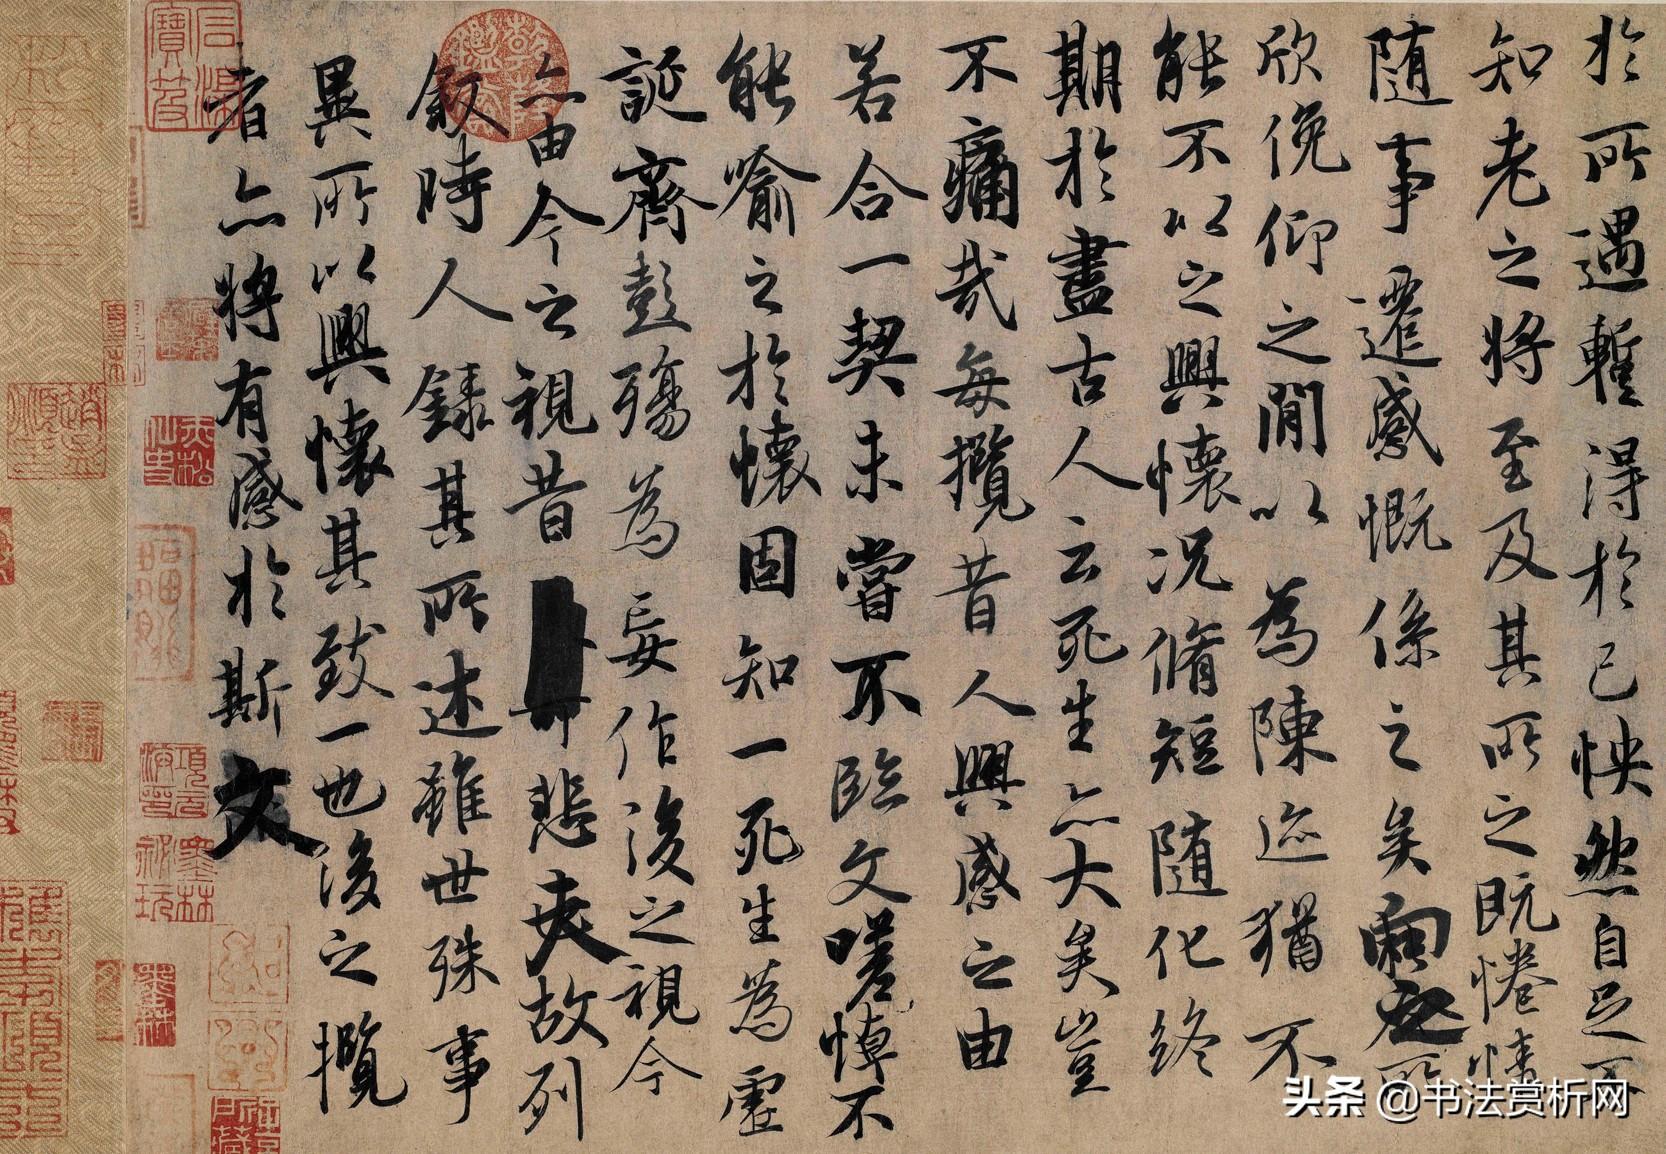 於所遇暫得於己怏然自足不
知老之將至及其所之既惓情
随事遷感慨係之矣向之所
欣俛仰之閒以為陳迹猶不
能不以之興懷况脩短随化終
期於盡古人云死生亦大矣豈
不痛哉每攬昔人興感之由
若合一契未嘗不臨文嗟悼不
能喻之於懷固知一死生為虛
誕齊彭殤為妄作後之視今
亦由今之視昔悲夫故列
敘時人錄其所述雖世殊事
異所以興懷其致一也後之攬
者亦將有感於斯文
头条 @书法赏析网